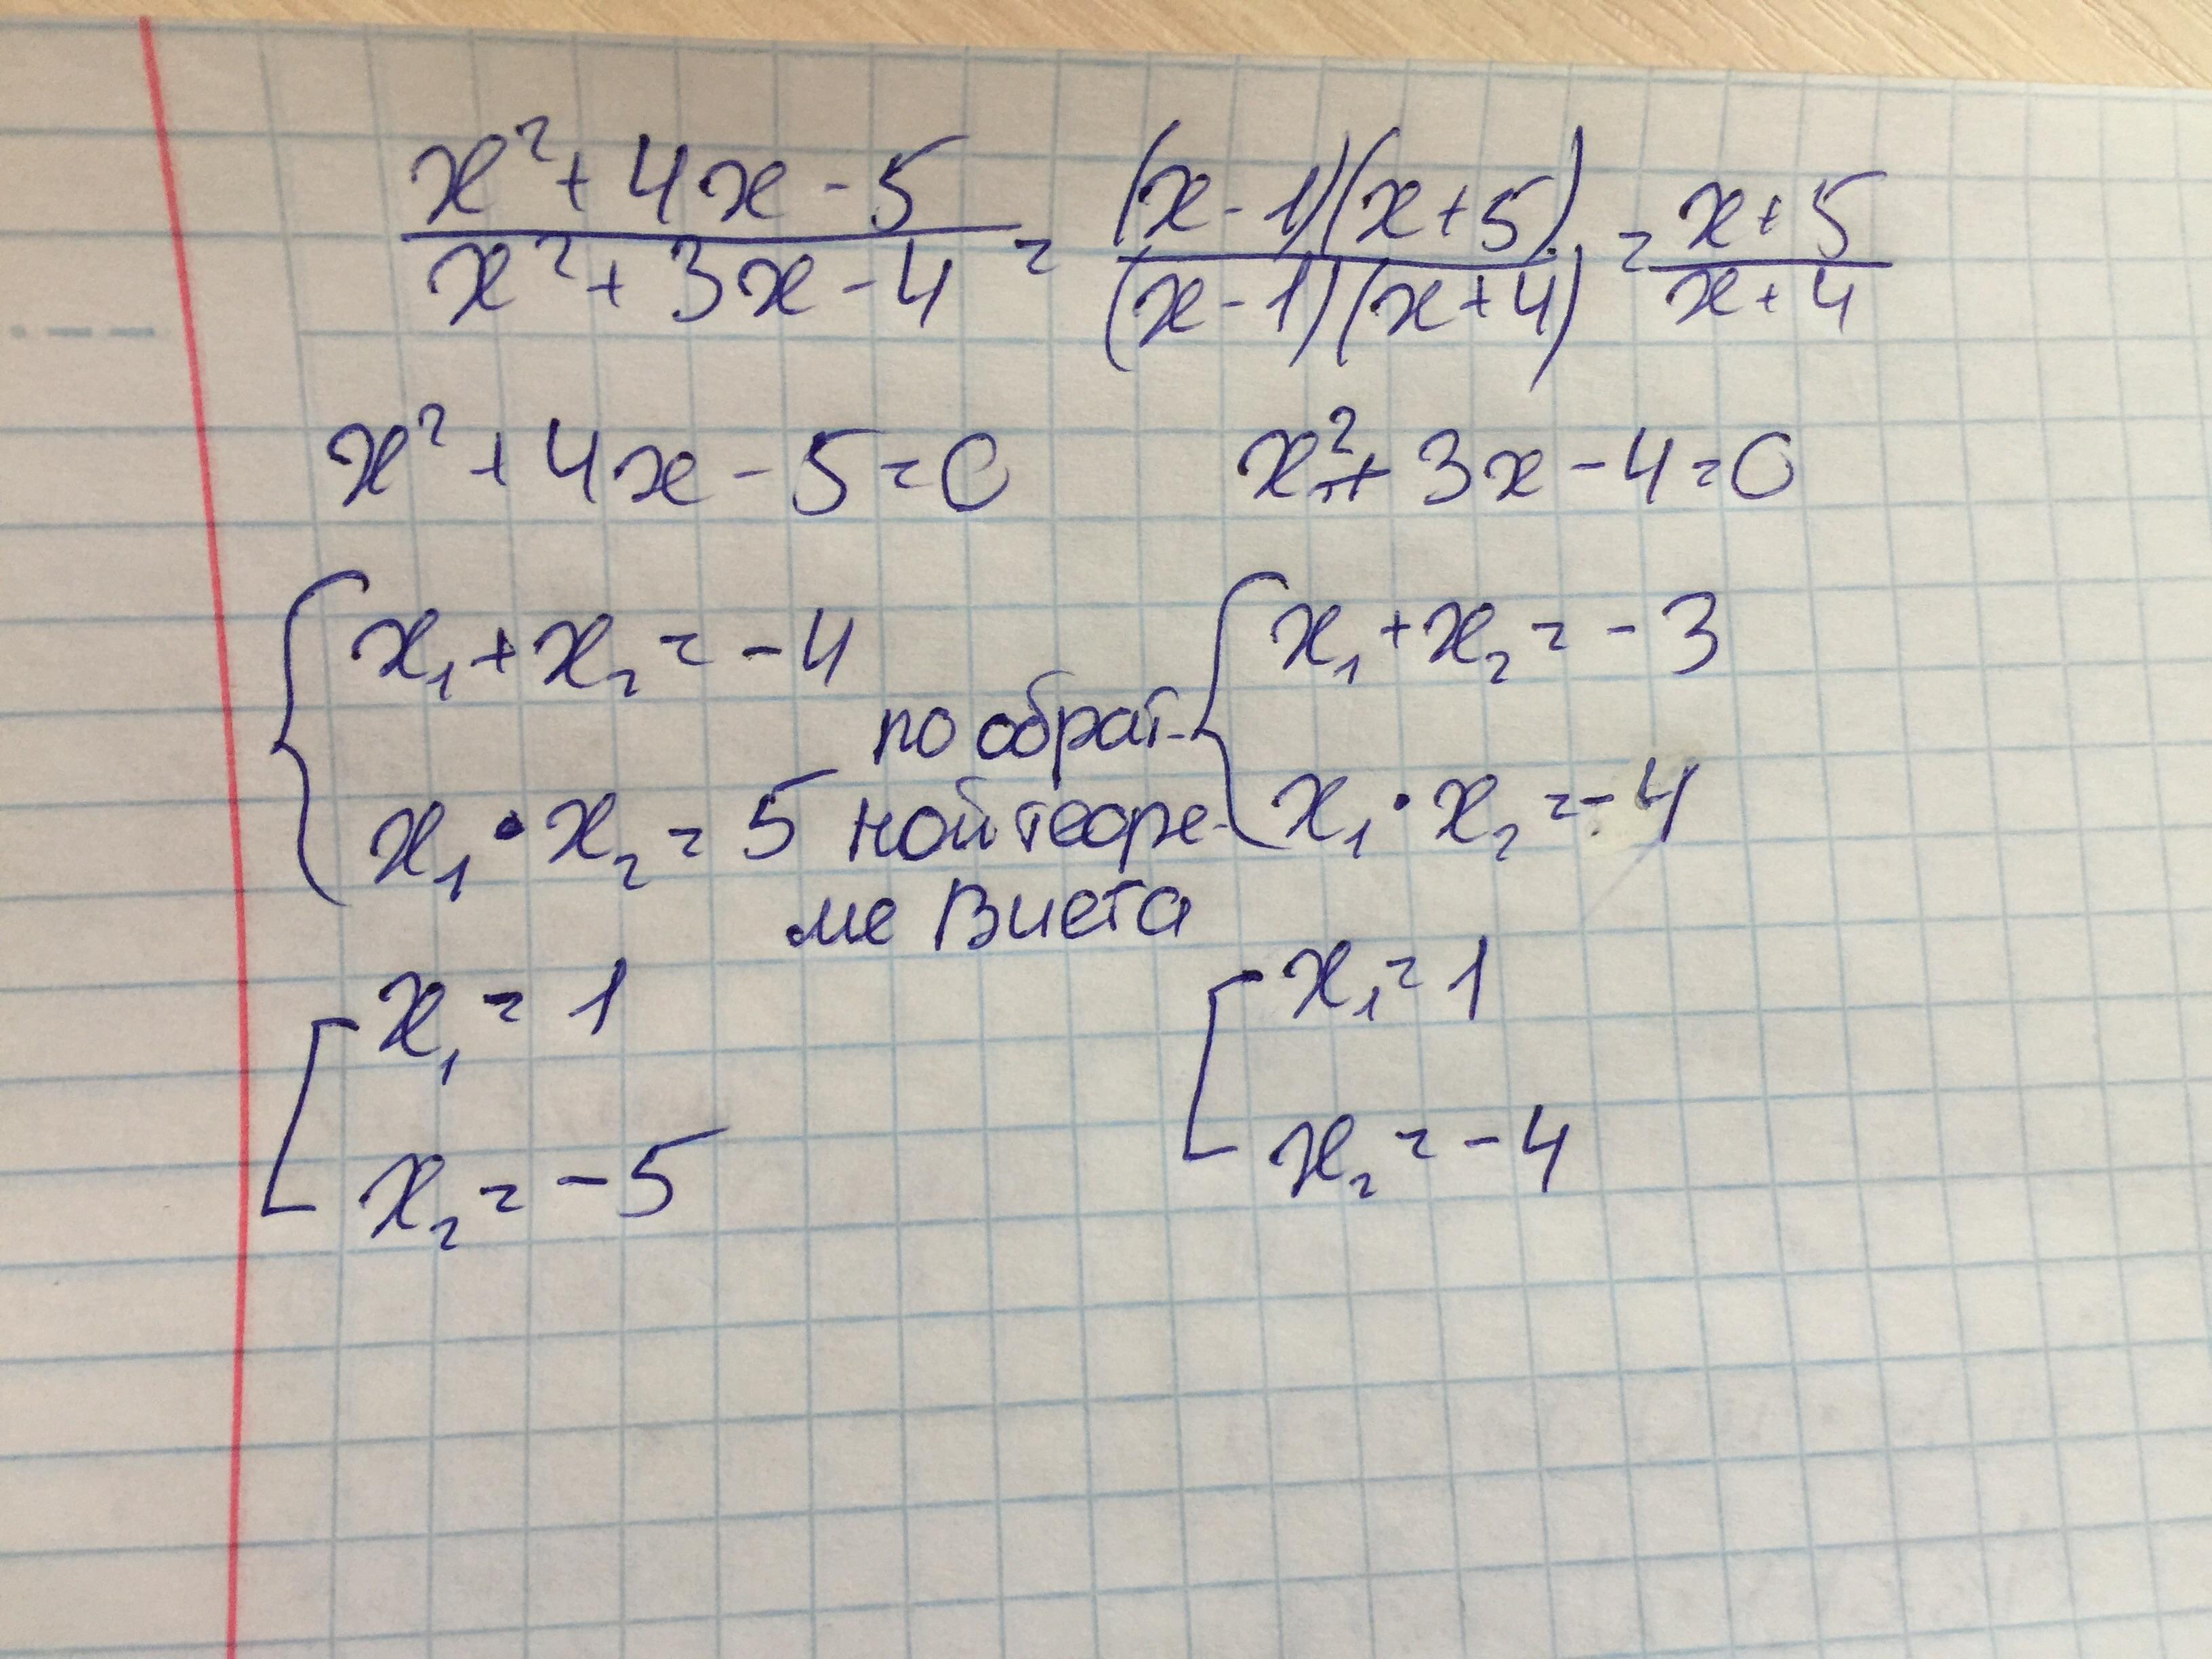 x² + 4x - 5 / x² + 3x - 4 = (x - 1)(x + 5) / (x - 1)(x + 4) = x + 5 / x + 4
x² + 4x - 5 = 0
x² + 3x - 4 = 0
{ x₁ + x₂ = -4
x₁ • x₂ = 5
по обрат-
ной теоре-
ме Виета
{ x₁ + x₂ = -3
x₁ · x₂ = -4
[ x₁ = 1
x₂ = -5
[ x₁ = 1
x₂ = -4